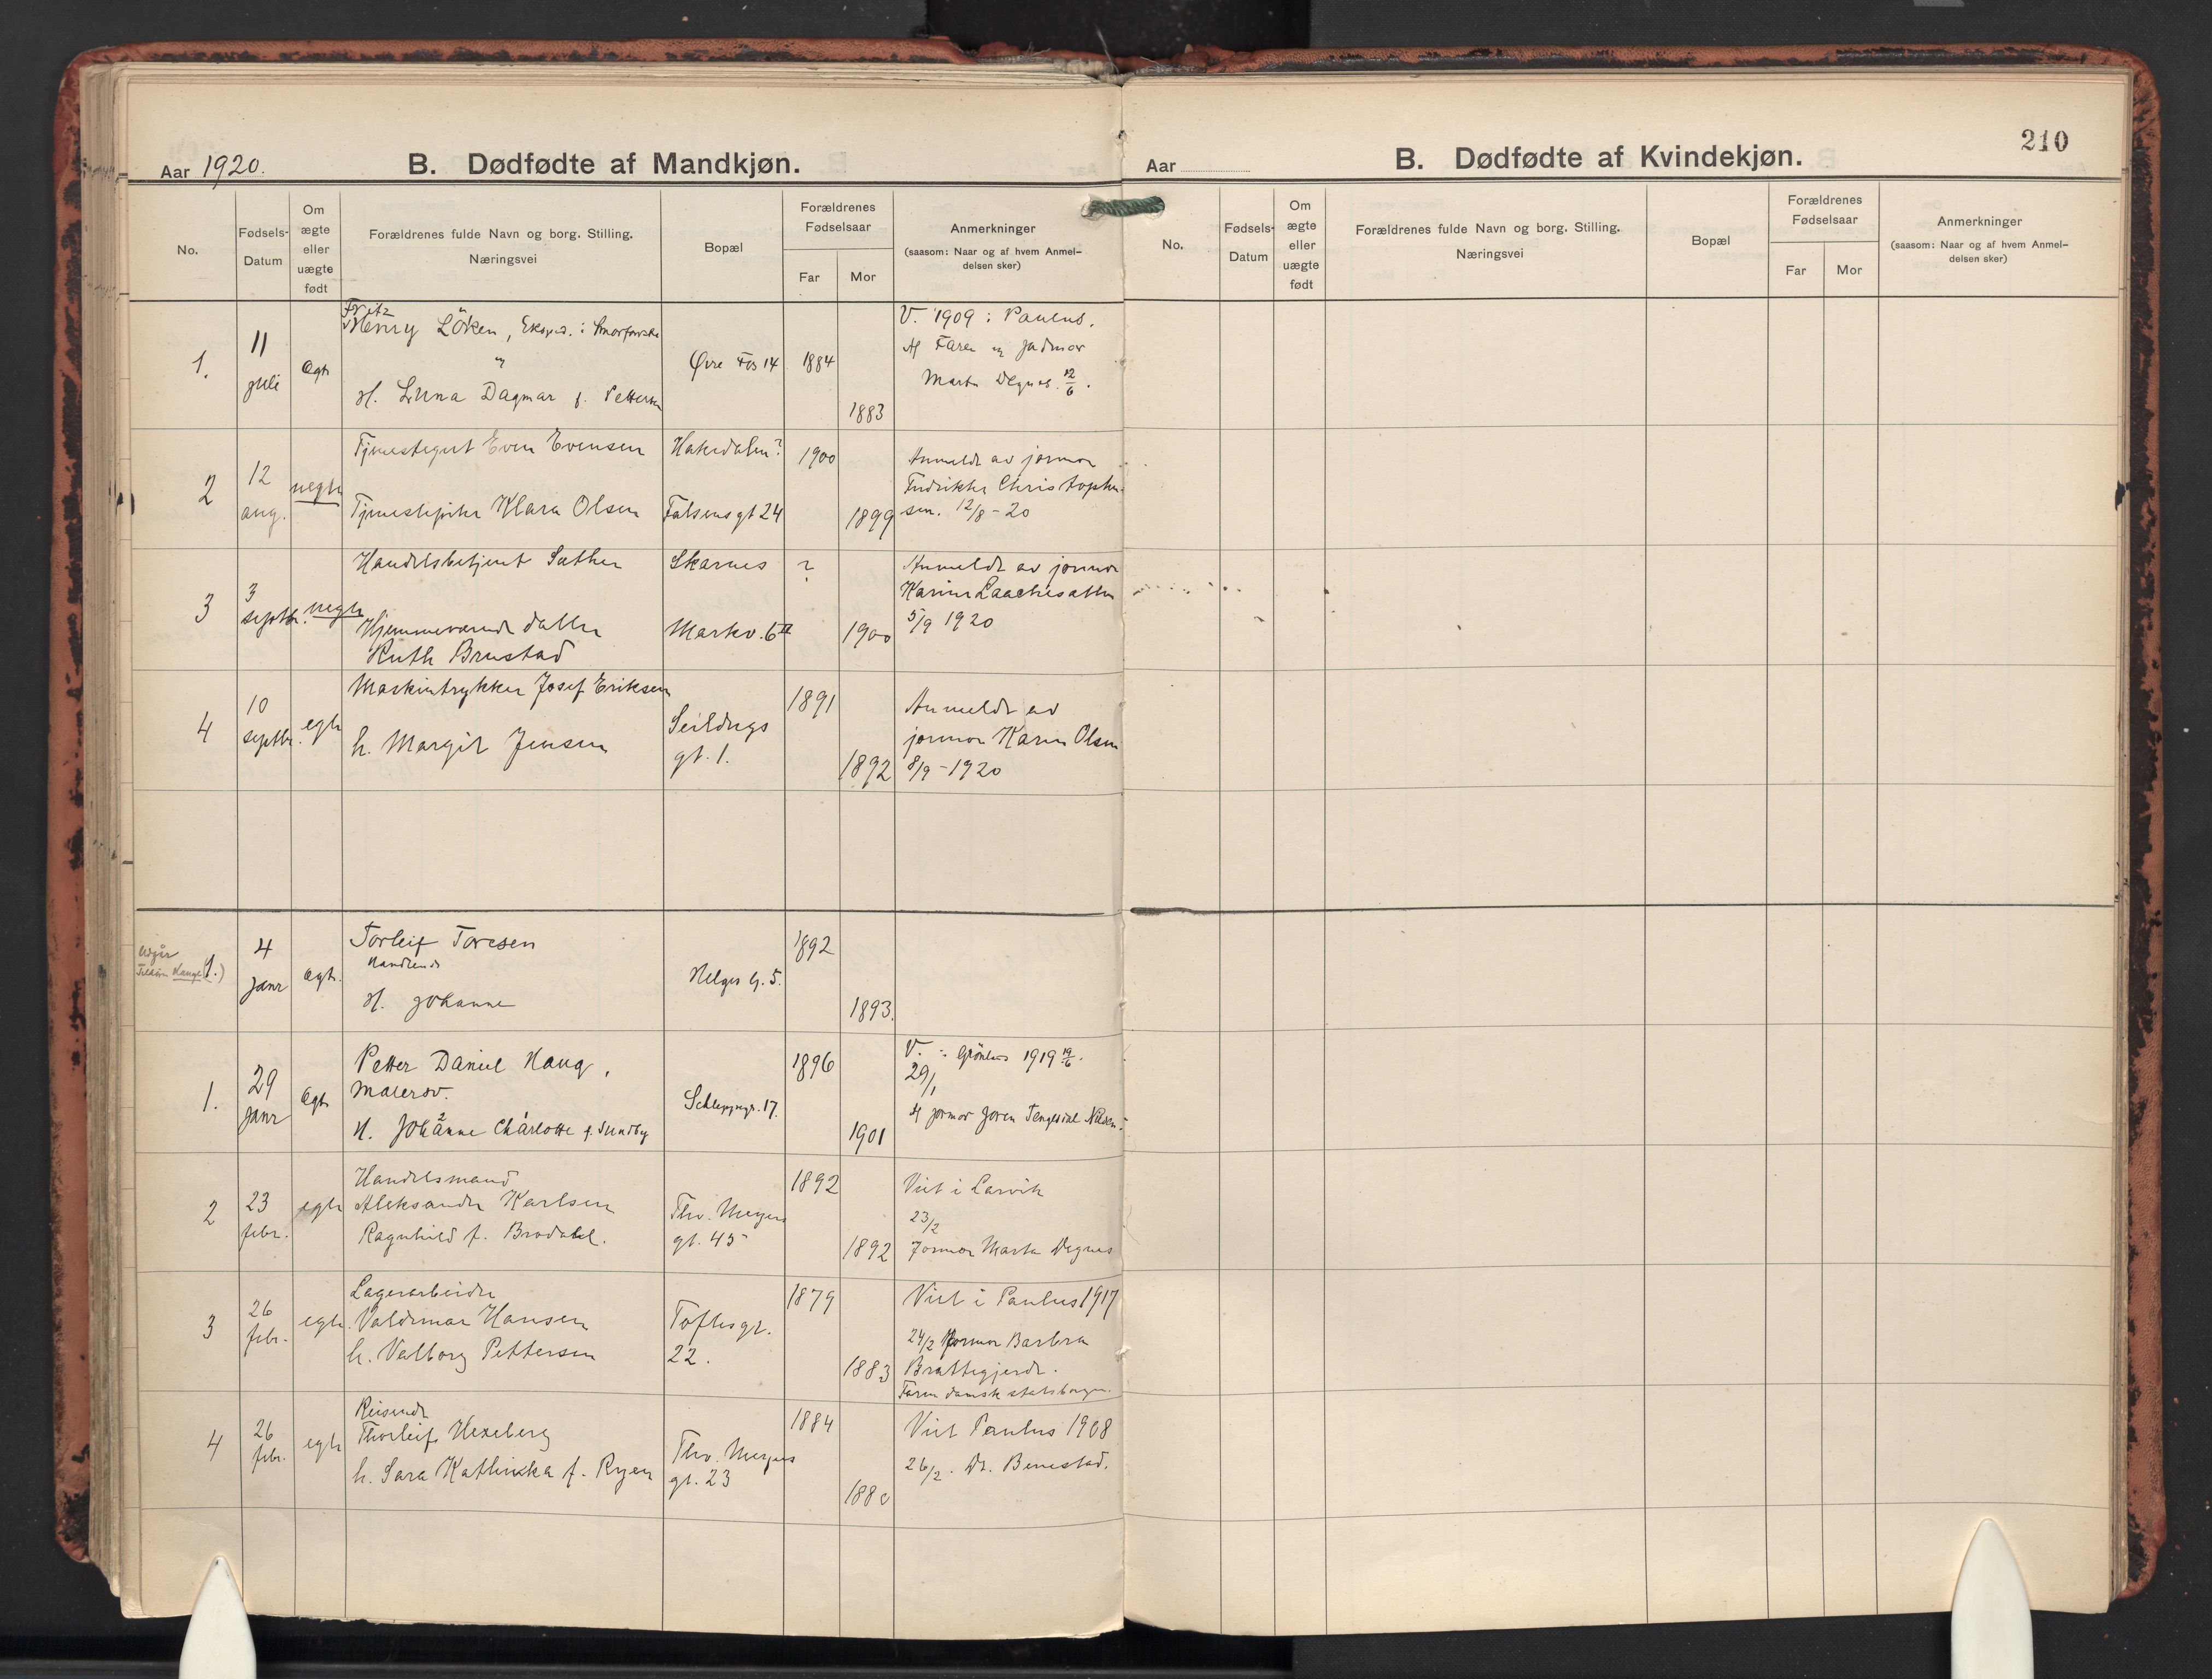 Aar 1920.
B. Dødfødte af Mandkjøn.
No.
Fødsels-Datum
Om ægte eller uægte født
Forældrenes fulde Navn og borg. Stilling.
Næringsvei
Bopæl
Forældrenes Fødselsaar
Far
Mor
Anmerkninger
(saasom: Naar og af hvem Anmel-
delsen sker)
1.
11
juli
Ægt
Fritz
Henry Löken, Eksped. i
og
H. Luna Dagmar f. Pettersen
Øvre Fos 14
1884
1883
V. 1909 i Paulus.
Af Faren og Jodmor
Marta Degnes. 12/6.
2
12
aug.
uegte
Tjenestegut Even Evensen
Tjenestepike Klara Olsen
Hakedalen?
Falsensgt 24
1900
1899
Anmeldt av jormor
Fredrikke Christophe
sen. 12/8 - 20
3
3
septbr.
uegte
Handelsbetjent Sæther
Hjemmeværende datter
Ruth Brustad
Skarnes
Markv. 6 II
?
1900
Anmeldt av jormor
Karine
5/9 1920
4
10
septbr.
egte
Maskintrykker Josef Eriksen
h. Margit Jensen
Seildugs
gt. 1.
1891
1892
Anmeldt av
jormor Karen Olsen
8/9 - 1920
Udgår
Haugs
(1.)
4
Janr
Ægt.
Torleif Toresen
Handlende
H. Johanne
Helges G. 5.
1892
1893.
1.
29
Janr
Ægt
Petter Daniel Haug,
Malersv.
H. Johanne Charlotte f. Sundby
2
Schleppegr. 17.
1896
1901
V. i Grönland 1919 19/6.
29/1
Af jormor Joren Tengesdal Nilsen.
2
23
febr.
egte
Handelsmand
Aleksander Karlsen
Ragnhild f. Brodahl.
Thv. Meyers
gt. 45
1892
1892
Viet i Larvik
23/2
Jormor Marta Degnes
3
26
febr.
egte
Lagerarbeider
Valdemar Hansen
h. Valborg Pettersen
Toftesgt.
22.
1879
1883
Viet i Paulus 1917
24/2 jormor Barbra
Brattegjerde.
Faren dansk statsborger.
4
26
febr.
egte
Reisende
Thorleif Hexeberg
h. Sara Kathinka f. Ryen
Thv. Meyers
gt. 23
1884
1880
Viet Paulus 1908
26/2. Dr. Benestad.
210
Aar
B. Dødfødte af Kvindekjøn.
No.
Fødsels-Datum
Om ægte eller uægte født
Forældrenes fulde Navn og borg. Stilling.
Næringsvei
Bopæl
Forældrenes Fødselsaar
Far
Mor
Anmerkninger
(saasom: Naar og af hvem Anmel-
delsen sker)